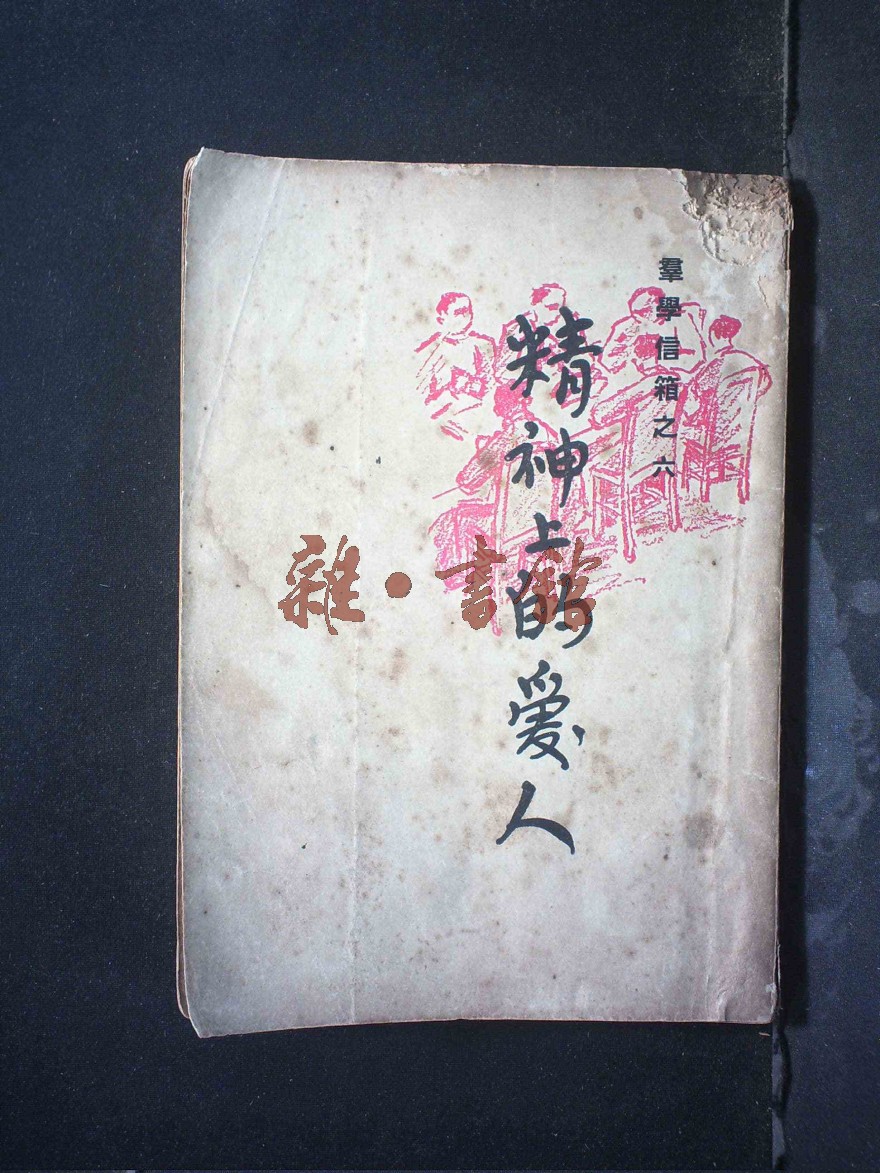 羣學信箱之六
精神上的爱人
雜·書館